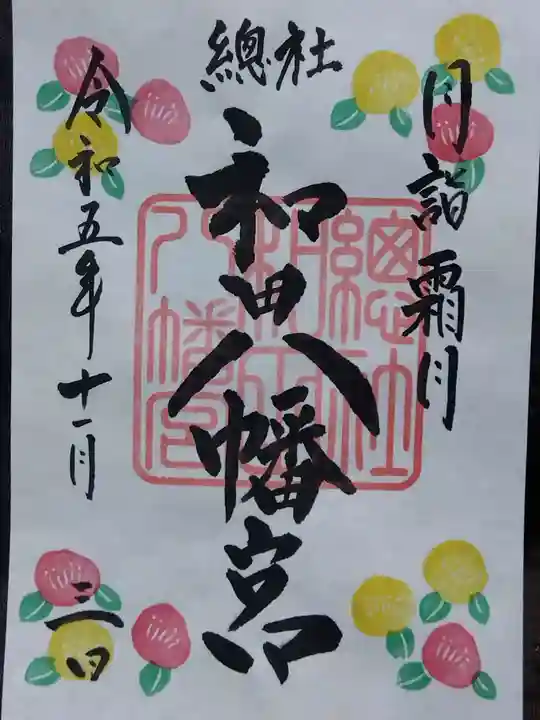 月詣 霜月
總社
和田八幡宮
總社
和田
八幡宮
令和五年十一月
三日